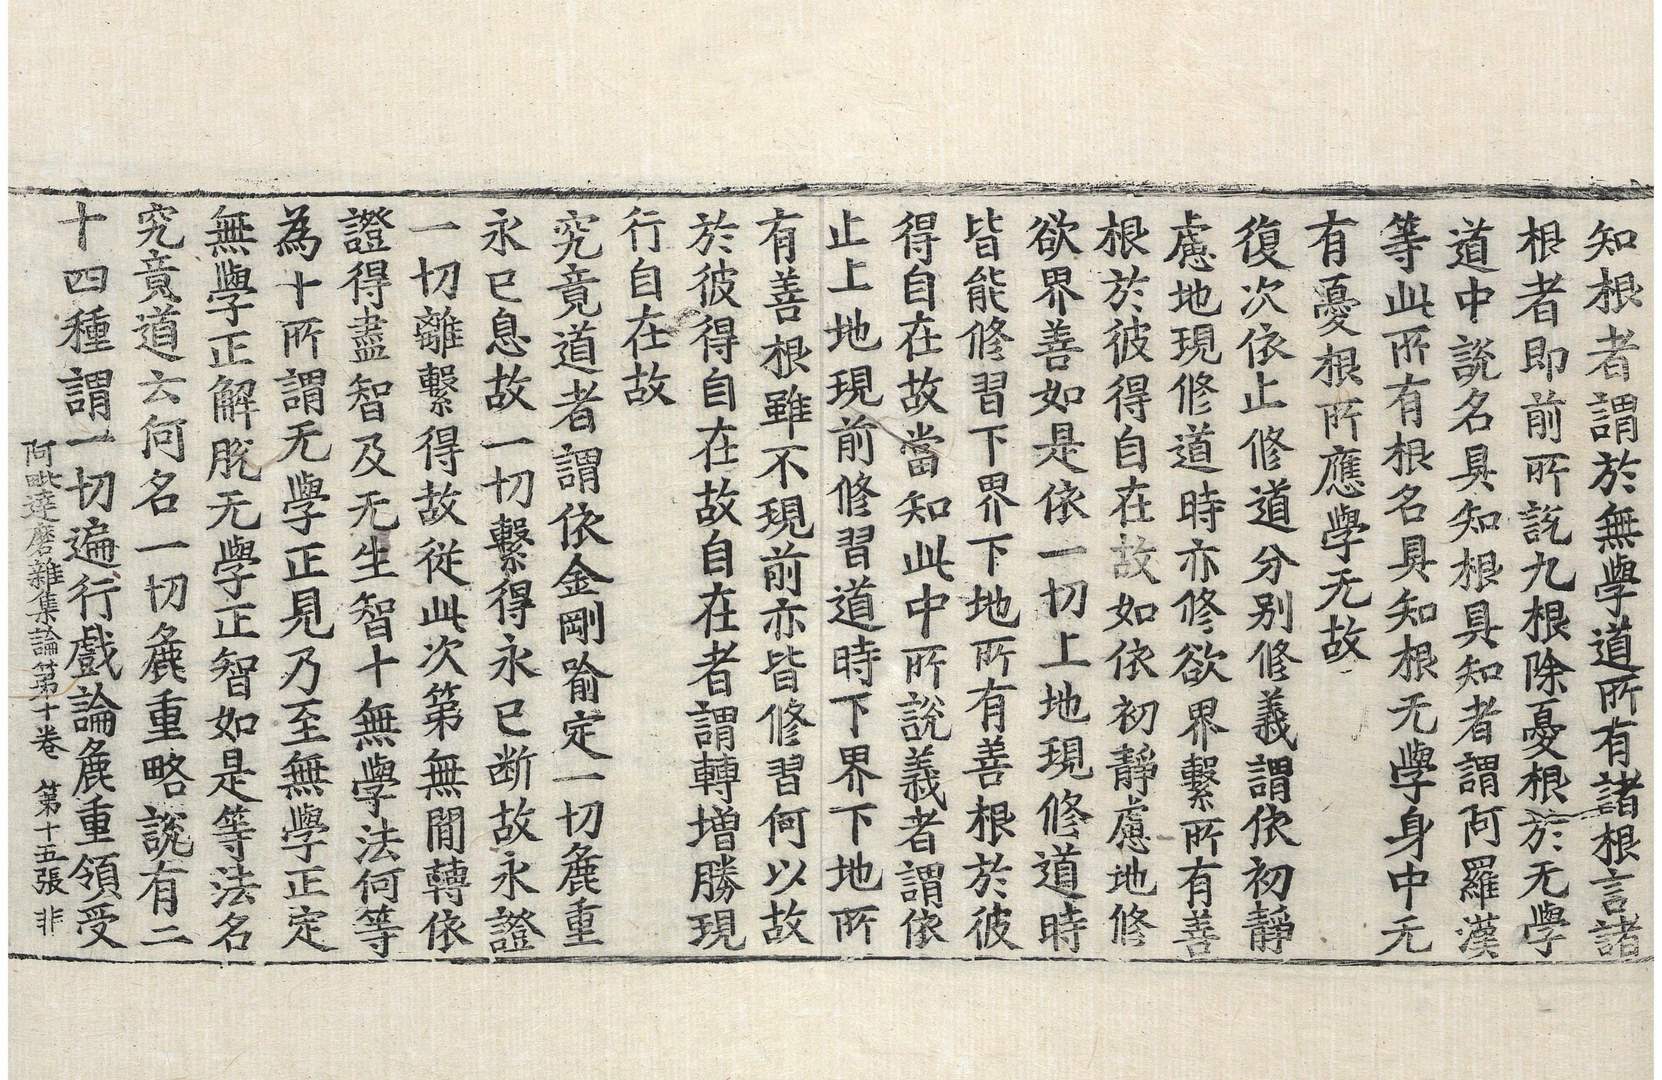 知根者謂於無學道所有諸根言諸
根者即前所說九根除憂根於无學
道中說名具知根具知者謂阿羅漢
等此所有根名具知根无學身中无
有憂根所應學无故
復次依止修道分别修義謂依初靜
慮地現修道時亦修欲界繫所有善
根於彼得自在故如依初靜慮地修
欲界善如是依一切上地現修道時
皆能修習下界下地所有善根於彼
得自在故當知此中所說義者謂依
止上地現前修習道時下界下地所
有善根雖不現前亦皆修習何以故
於彼得自在故自在者謂轉增勝現
行自在故
究竟道者謂依金剛喻定一切麁重
永已息故一切繫得永已断故永證
一切離繫得故從此次第無間轉依
證得盡智及无生智十無學法何等
為十所謂无學正見乃至無學正定
無學正解脫无學正智如是等法名
究竟道云何名一切麁重略說有二
十四種謂一切遍行戲論麁重領受
阿毗達磨雜集論第十卷 第十五張 非